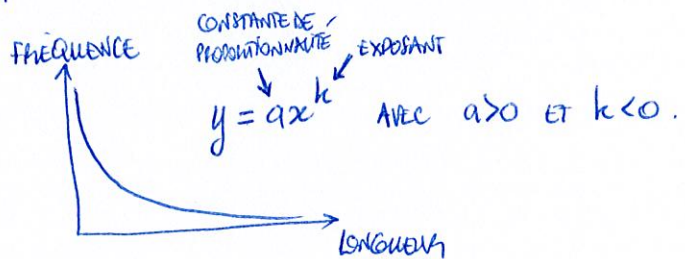 FRÉQUENCE
CONSTANTE DE
PROPORTIONNALITÉ
EXPOSANT
y = ax^k AVEC a>0 ET k<0.
LONGUEUR